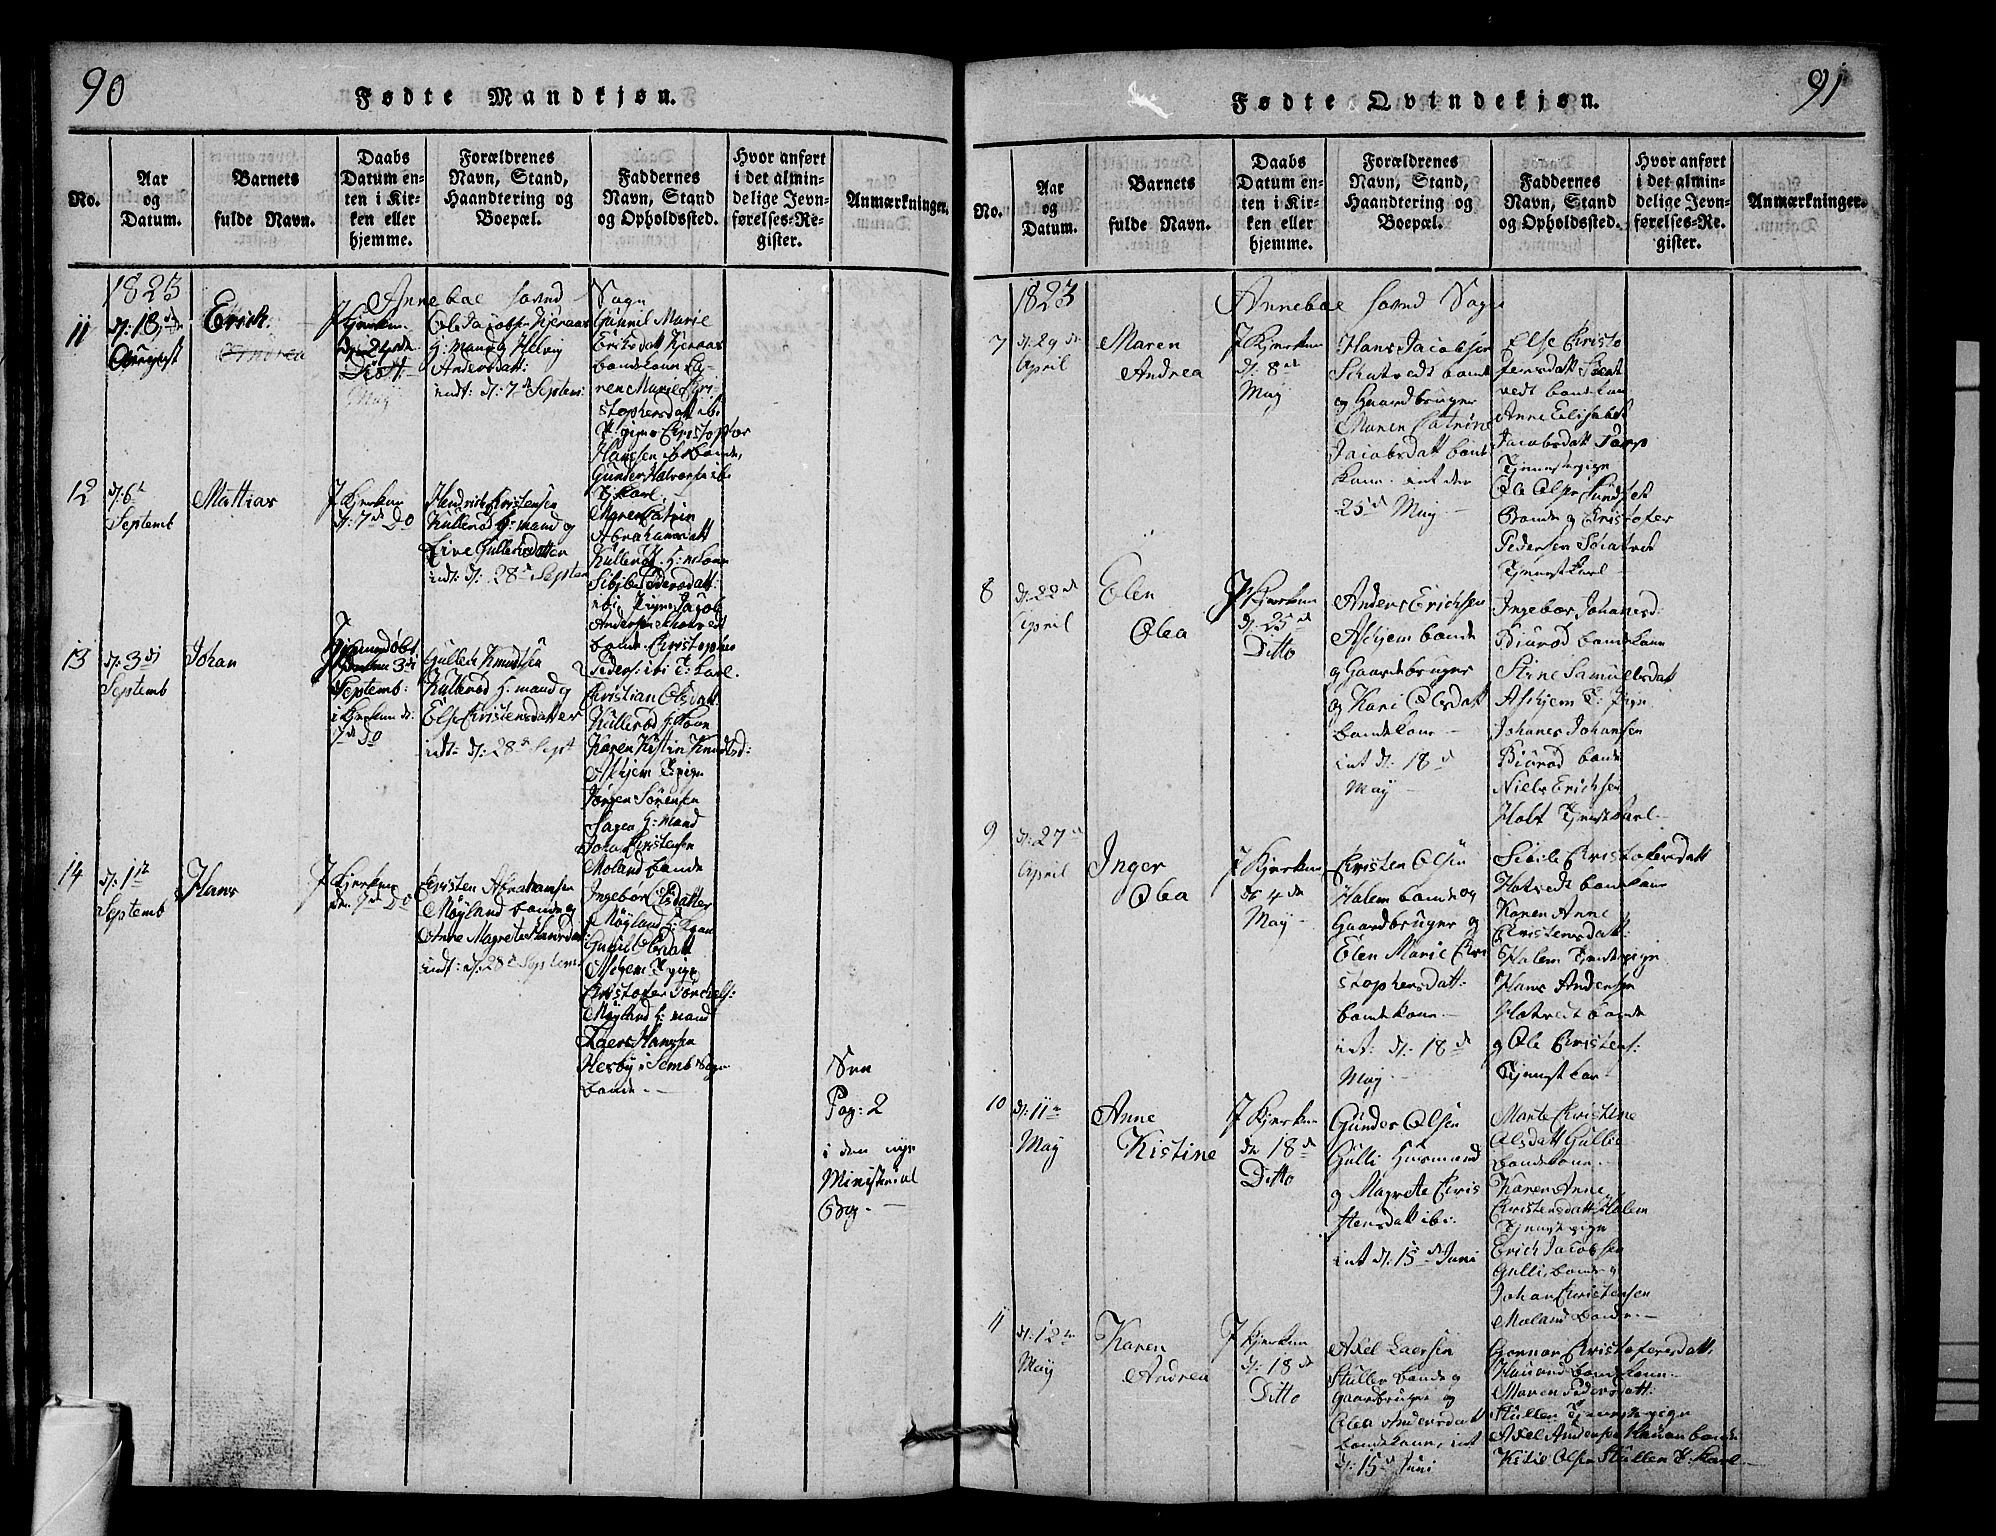 90
Fødte Mandkjøn.
No.
Aar
og
Datum.
Barnets
fulde Navn.
Daabs
Datum en-
ten i Kir-
ken eller
hjemme.
Forældrenes
Navn, Stand,
Haandtering og
Boepæl.
Faddernes
Navn, Stand
og Opholdssted.
Hvor anført
i det almin-
delige Jevn-
førelses-Re-
gister.
Anmærkninger.
1823
Annebae Sogn
11
d: 18
August
Erich
J Kjerken
d: 24de
Ole Jacobsen Kjeraas
H: mand og Helvig
Andersdatt:
indt: d: 7de Septem:
Gunnil Marie
Eriksdatt Kjeraas
bondekone Ka-
ren Marie Kri-
stophersdatt ibi
T: pige Christoffer
Hansen ibi bonde,
Gunder Halvorsen ibi
T. Karl.
12
d: 6te
Septemb
Mattias
J Kjerken
d: 7de Do
Hendrich Cristensen
Kullerød H: mand og
Live Gullichsdatter
indt: d: 28de Septem
Maren Catrin
Abrahamsdatt
Kullerød H: m: Kone
Sibile Pedersdatt:
ibi T: pige Jacob
Andersen
bonde Christopher
Peders: ibi T: Karl.
13
d: 3di
Septemb
Johan
Hjemmedøbt
3di
Septemb:
i Kjerken d:
7de Do
Gullich Knudsen
Kullerød H: mand og
Else Cristensdatter
indt: d: 28de Sept
Christian Olsdatt
Kullerød H: Kone
Karen Kistin Knudsd:
Askjem T: pige
Jørgen Sørensen
H: mand
Johan Cristensen
Moland bonde
14
d: 1te
Septemb
Hans
J Kjerken
d: 7de Do
Cristen Abrahamsen
Møyland bonde og
Anne Magrete Hansdat
indt: d: 28de Septem
Ingebør Olsdatter
Møyland H: Kone
Gunil Olsdatt
Askjem T: pige
Cristofer Torchels:
Møyland H: mand
Laers Hansen
Hesby i Semb Sogn
bonde.
See
Pag: 2
i den nye
Ministerial
Bog.
91
Fødte Qvindekjøn.
No.
Aar
og
Datum.
Barnets
fulde Navn.
Daabs
Datum en-
ten i Kir-
ken eller
hjemme.
Forældrenes
Navn, Stand,
Haandtering og
Boepæl.
Faddernes
Navn, Stand
og Opholdssted.
Hvor anført
i det almin-
delige Jevn-
førelses-Re-
gister.
Anmærkninger.
1823
Annebae Sogn
7
d: 29de
April
Maren
Andrea
J Kjerken
d: 8de
May
Hans Jacobsen
bonde
og Gaardbruger
Maren Catrine
Jacobsdatt bonde
Kone. int den
25de May
Else Cristo
fersdatt
bondekone
Anne Elisabet
Jacobsdatt Torp
Tjenestepige
Ole Olsen
Bonde og Cristofer
Pedersen
Tjenestkarl
8
d: 22de
April
Elen
Olea
J Kjerken
d: 25de
Ditto
Anders Erichsen
Askjem bonde
og Gaardbruger
og Kari Olsdatt
bondekone
int d: 18de
May
Ingebor Johanesd:
Biørød bondekone
Stine Samuelsdatt
Askjem T: pige
Johanes Johansen
Biørød bonde
Niels Erichsen
Holt Tjenestkarl.
9
d: 27de
April
Inger
Olea
J Kjerken
d: 4de
May
Cristen Olsen
Halem bonde og
Gaardbruger og
Elen Marie Cri
stophersdatt:
bondekone
int: d: 18de
May
Sibile Cristofersdatt
Hotvedt bondekone
Karen Anne
Cristensdatt:
Halem Tjenestepige
Hans Andersen
Hotvedt bonde
og Ole Cristens:
Tjenestkar
10
d: 11te
May
Anne
Kistine
J Kjerken
d: 18de
Ditto
Gunder Olsen
Gulli Huusmand
og Magrete Cris
tensdatt ibi:
int d: 15de Juni
Marte Cristine
Olsdatt Gullie
bondekone
Karen Anne
Cristensdatt Halem
Tjenestepige
Erich Jacobsen
Gulli, bonde og
Johan Cristensen
Moland bonde
11
d: 12te
May
Karen
Andrea
J Kjerken
d: 18de
Ditto
Axel Laersen
Stullen bonde og
Gaardbruger og
Olea Andersdatt
bondekone, int
d: 15de Juni
Gonnor Cristofersdatt:
bondekone
Maren Pedersdatt:
Stullen Tjenestepige
Axel Andersen bonde
Kitil Olsen Stullen T: Karl